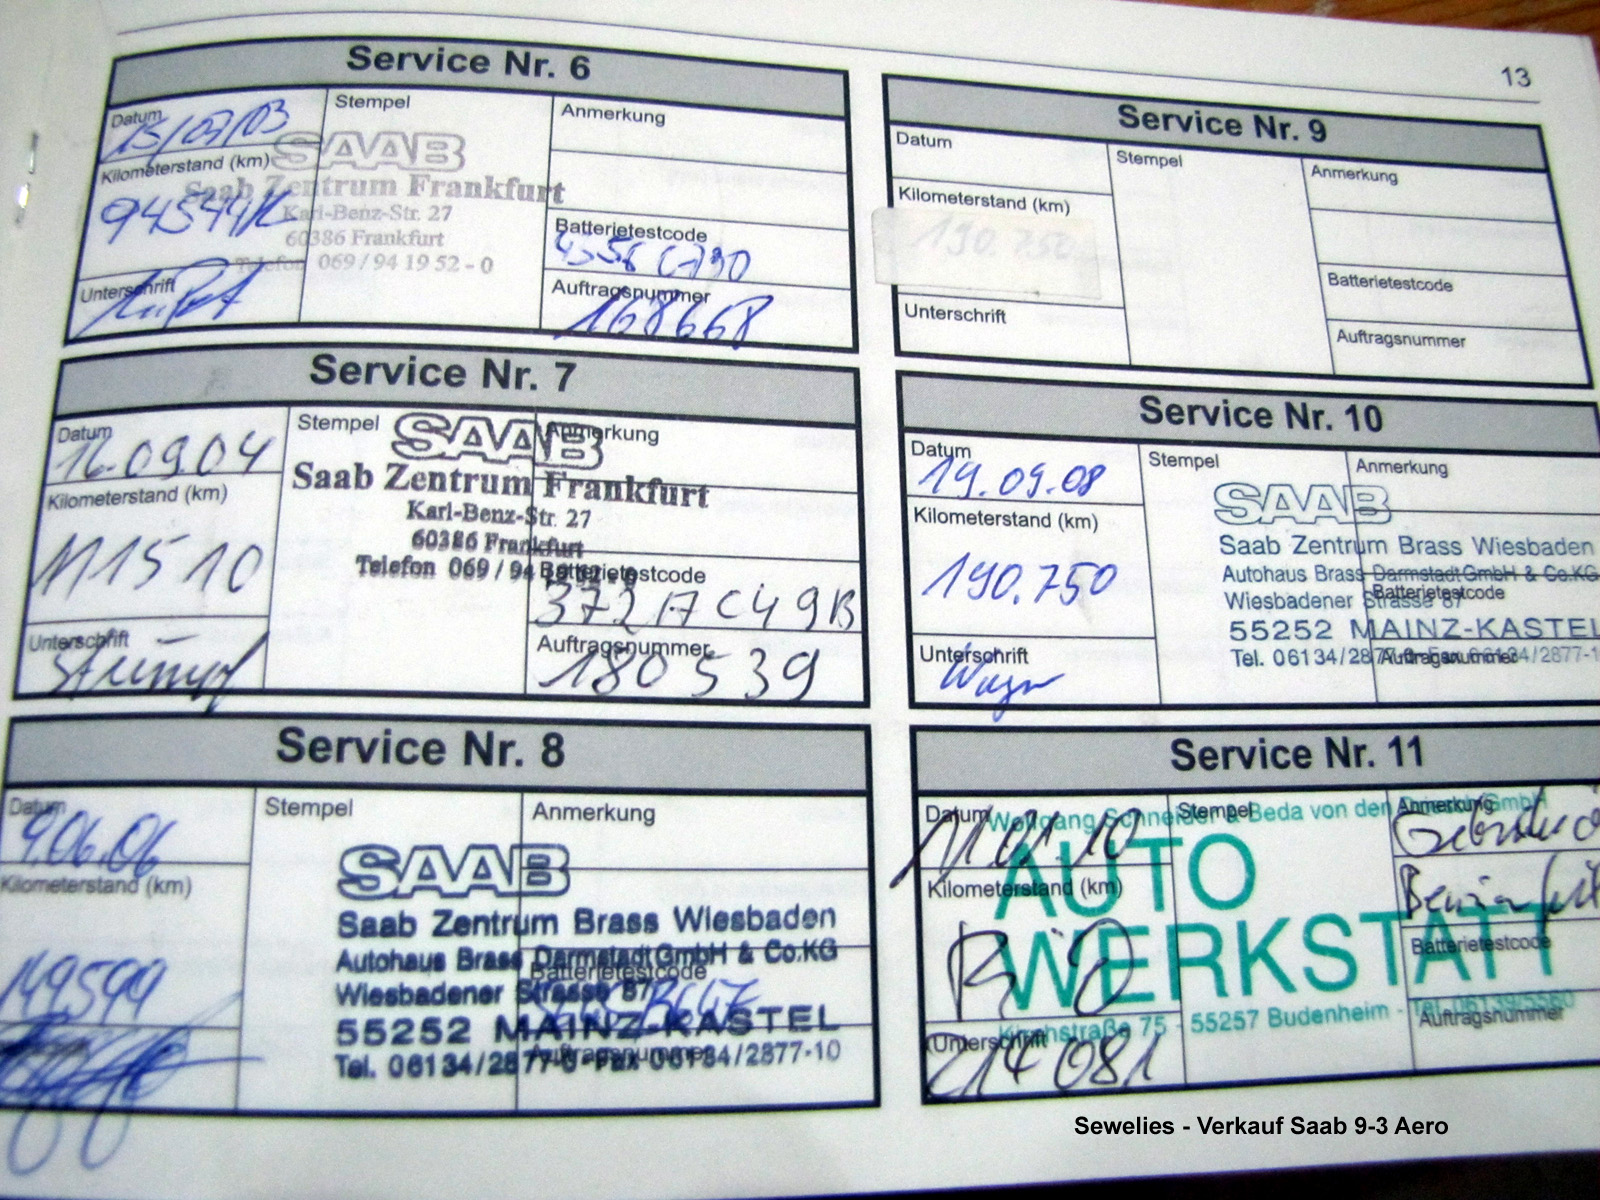 13
Service Nr. 6
Datum
15/07/03
Stempel
Anmerkung
Kilometerstand (km)
94544
SAAB
Saab Zentrum Frankfurt
Karl-Benz-Str. 27
60386 Frankfurt
Telefon 069 / 94 19 52 - 0
Batterietestcode
Unterschrift
Auftragsnummer
168668
Service Nr. 7
Datum
16.09.04
Stempel
Anmerkung
Kilometerstand (km)
111510
SAAB
Saab Zentrum Frankfurt
Karl-Benz-Str. 27
60386 Frankfurt
Telefon 069 / 94
Batterietestcode
37217C49B
Unterschrift
Auftragsnummer
180539
Service Nr. 8
Datum
9.06.06
Stempel
Anmerkung
Kilometerstand (km)
149599
SAAB
Saab Zentrum Brass Wiesbaden
Autohaus Brass Darmstadt GmbH & Co.KG
Wiesbadener Strasse 87
55252 MAINZ-KASTEL
Tel. 06134/2877-0 - Fax 06134/2877-10
Batterietestcode
Auftragsnummer
Service Nr. 9
Datum
Stempel
Anmerkung
Kilometerstand (km)
190.750
Batterietestcode
Unterschrift
Auftragsnummer
Service Nr. 10
Datum
19.09.08
Stempel
Anmerkung
Kilometerstand (km)
190.750
SAAB
Saab Zentrum Brass Wiesbaden
Autohaus Brass Darmstadt GmbH & Co.KG
Wiesbadener Strasse 87
55252 MAINZ-KASTEL
Tel. 06134/2877-0 - Fax 06134/2877-1
Batterietestcode
Unterschrift
Auftragsnummer
Service Nr. 11
Datum
11.01.10
Stempel
Anmerkung
Wolfgang Schneider & Beda von den GmbH
AUTO
WERKSTATT
Kirchstraße 75 - 55257 Budenheim - Tel. 06139/5560
Kilometerstand (km)
Batterietestcode
Unterschrift
214081
Auftragsnummer
Sewelies - Verkauf Saab 9-3 Aero